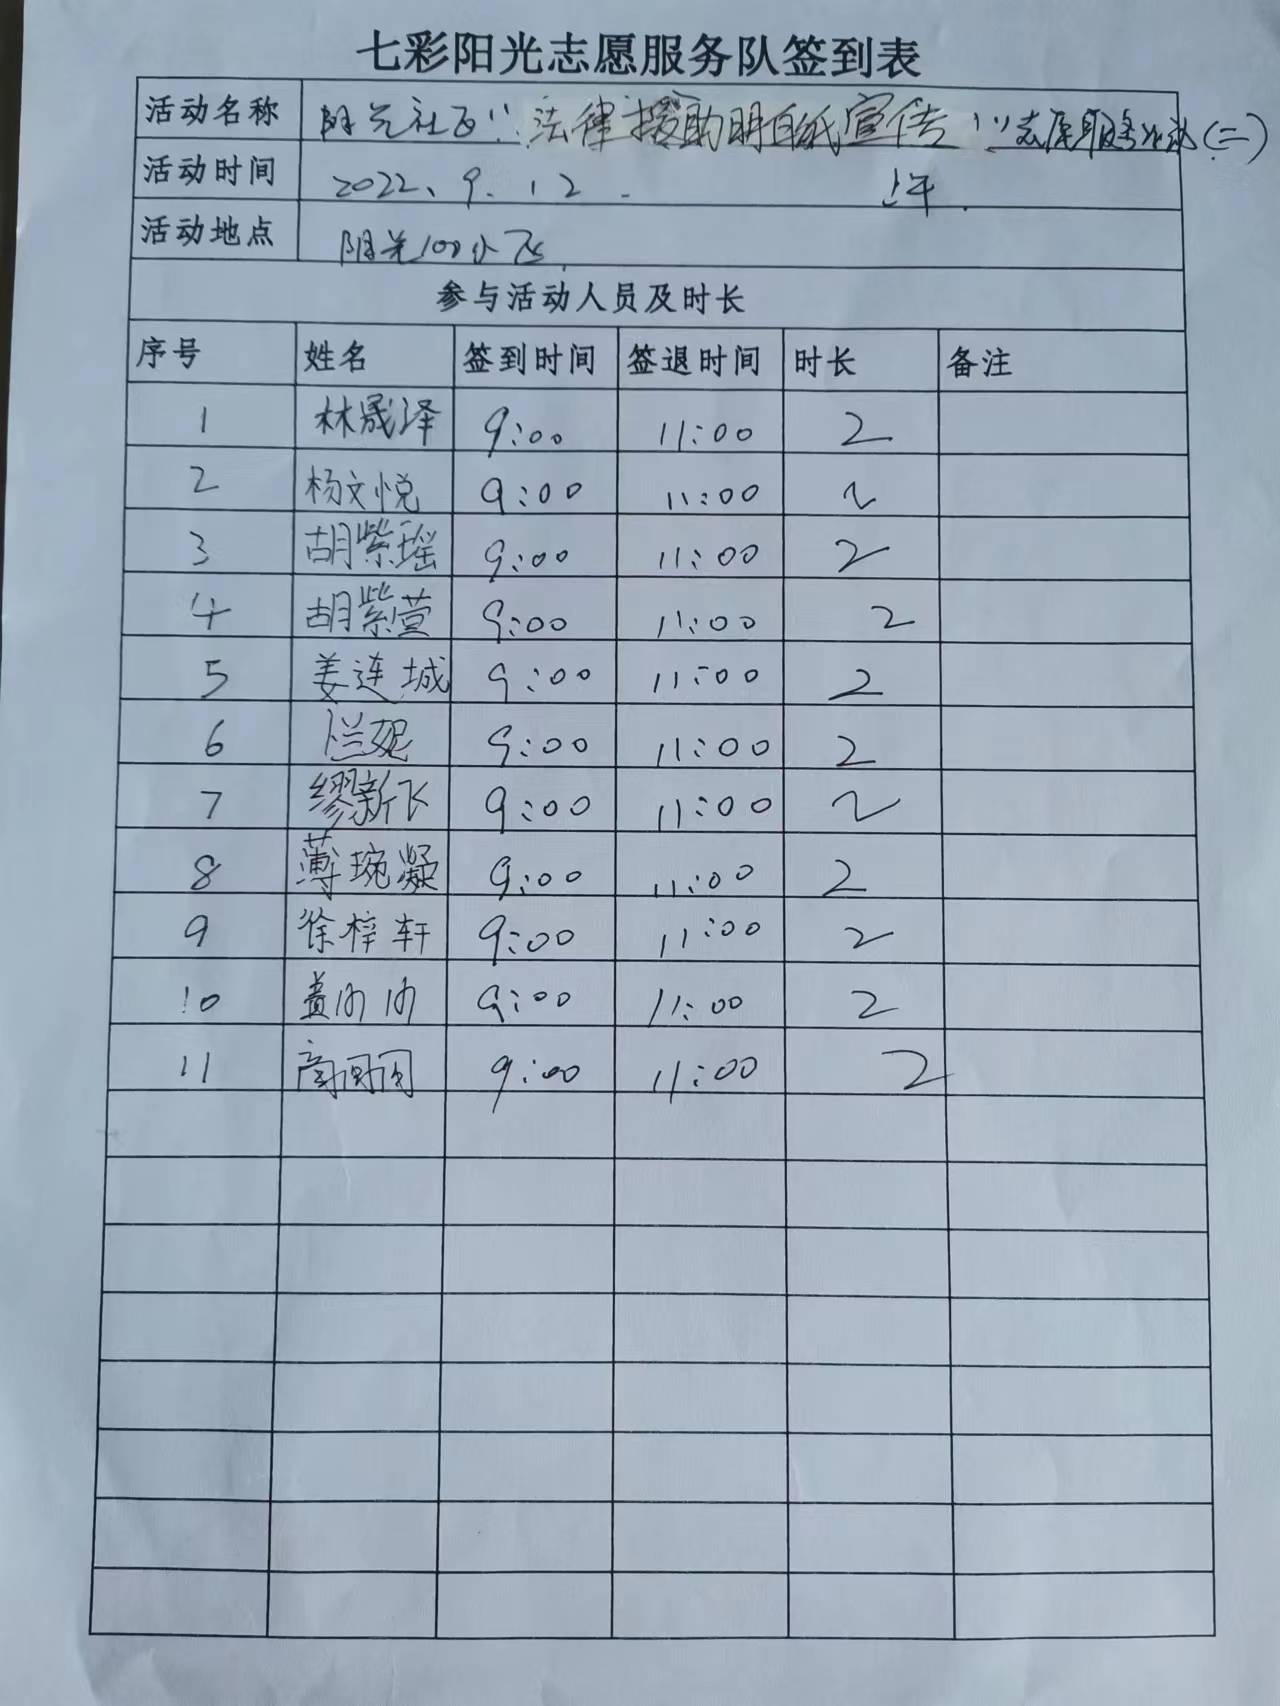 七彩阳光志愿服务队签到表
活动名称 阳光社区"法律援助明白纸宣传"志愿服务活动(二)
活动时间 2022.9.12. 上午.
活动地点 阳光100小区.
参与活动人员及时长
序号 姓名 签到时间 签退时间 时长 备注
1 林晟泽 9:00 11:00 2
2 杨文悦 9:00 11:00 2
3 胡紫瑶 9:00 11:00 2
4 胡紫萱 9:00 11:00 2
5 姜连城 9:00 11:00 2
6 9:00 11:00 2
7 缪新飞 9:00 11:00 2
8 薄琬凝 9:00 11:00 2
9 徐梓轩 9:00 11:00 2
10 9:00 11:00 2
11 9:00 11:00 2